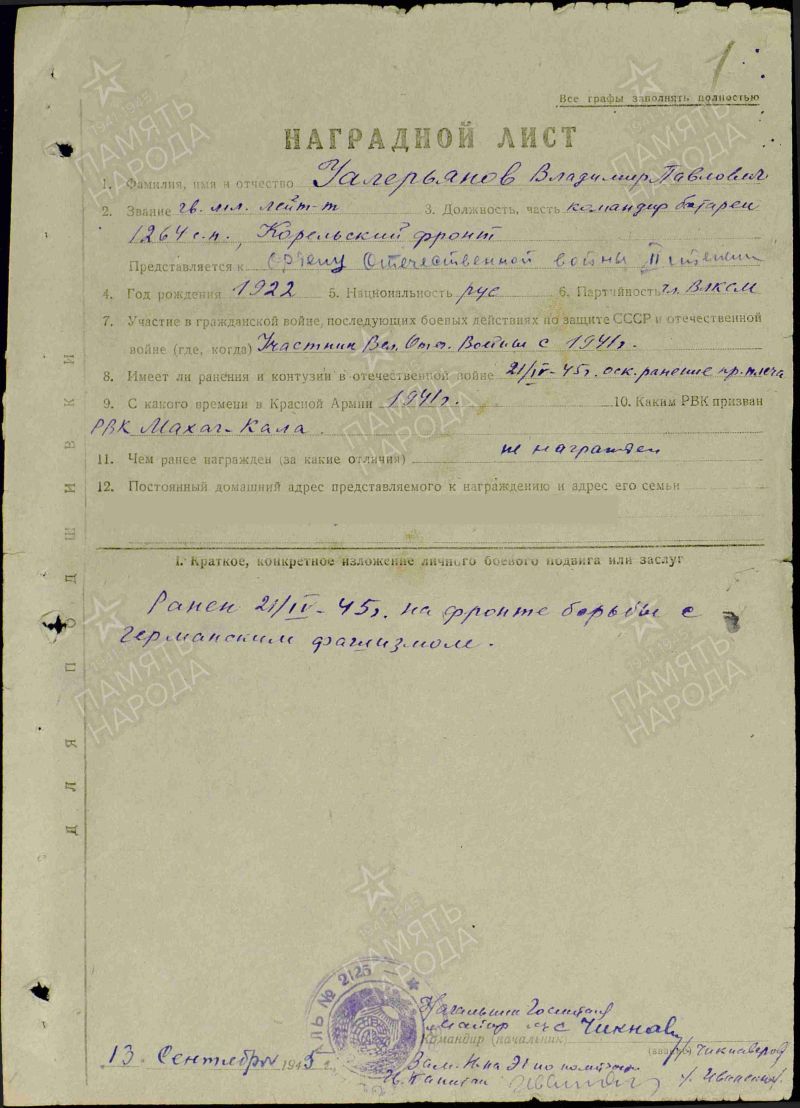 1
Все графы заполнять полностью
НАГРАДНОЙ ЛИСТ
1. Фамилия, имя и отчество Уалерьянов Владимир Павлович
2. Звание гв. мл. лейт-т 3. Должность, часть командир батареи
1264 с.п., Корельский фронт
Представляется к ордену Отечественной войны II степени
4. Год рождения 1922 5. Национальность рус 6. Партийность чл. Влксм
7. Участие в гражданской войне, последующих боевых действиях по защите СССР и отечественной
войне (где, когда) Участник Вел. Отеч. Войны с 1941г.
8. Имеет ли ранения и контузии в отечественной войне 21/IV-45г. оск. ранение пр. плеча
9. С какого времени в Красной Армии 1941г. 10. Каким РВК призван
РВК Махач-Кала.
11. Чем ранее награжден (за какие отличия) не награжден
12. Постоянный домашний адрес представляемого к награждению и адрес его семьи
I. Краткое, конкретное изложение личного боевого подвига или заслуг
Ранен 21/IV-45г. на фронте борьбы с
германским фашизмом.
ДЛЯ ПОДШИВКИ
№ 2125
Начальник Госпиталя
майор м/с Чикнав
Командир (начальник)
13 Сентября 1945 г.
Зам. Н-ка ЭГ по политчасти
Капитан
ПАМЯТЬ НАРОДА
1941-1945